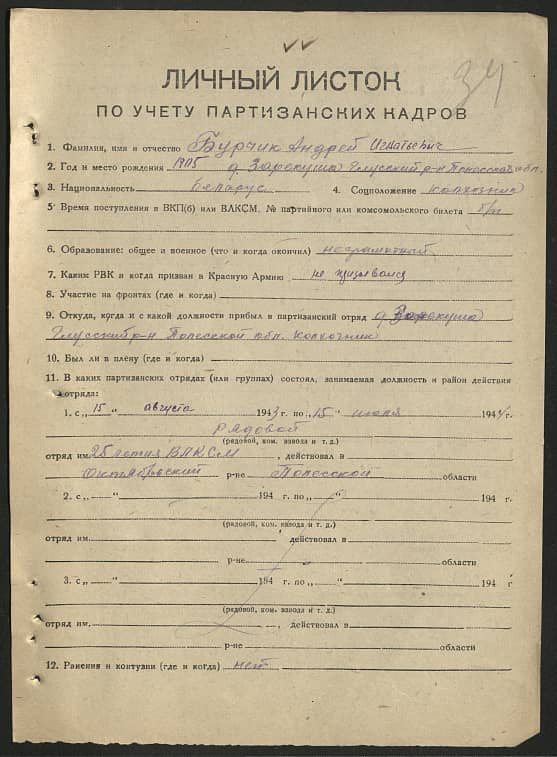 34
ЛИЧНЫЙ ЛИСТОК
ПО УЧЕТУ ПАРТИЗАНСКИХ КАДРОВ
1. Фамилия, имя и отчество Бурчик Андрей Игнатьевич
2. Год и место рождения 1905 д Зарекуша Глусский р-н Полесской обл.
3. Национальность беларус 4. Соцположение колхозник
5. Время поступления в ВКП(б) или ВЛКСМ. № партийного или комсомольского билета б/п
6. Образование: общее и военное (что и когда окончил) неграмотный
7. Каким РВК и когда призван в Красную Армию не призывался
8. Участие на фронтах (где и когда)
9. Откуда, когда и с какой должности прибыл в партизанский отряд д Зарекуша
Глусский р-н Полесской обл. колхозник
10. Был ли в плену (где и когда)
11. В каких партизанских отрядах (или группах) состоял, занимаемая должность и район действия
отряда:
1. с „15„ августа 1943 г. по „15“ июля 1944 г.
Рядовой
(рядовой, ком. взвода и т. д.)
отряд им. 25 летия ВЛКСМ, действовал в
Октябрьский р-не Полесской области
2. с „ “ 194 г. по „ “ 194 г.
(рядовой, ком. взвода и т. д.)
отряд им. действовал в
р-не области
3. с „ “ 194 г. по „ “ 194 г
(рядовой, ком. взвода и т. д.)
отряд им. , действовал в
р-не области
12. Ранения и контузии (где и когда) нет